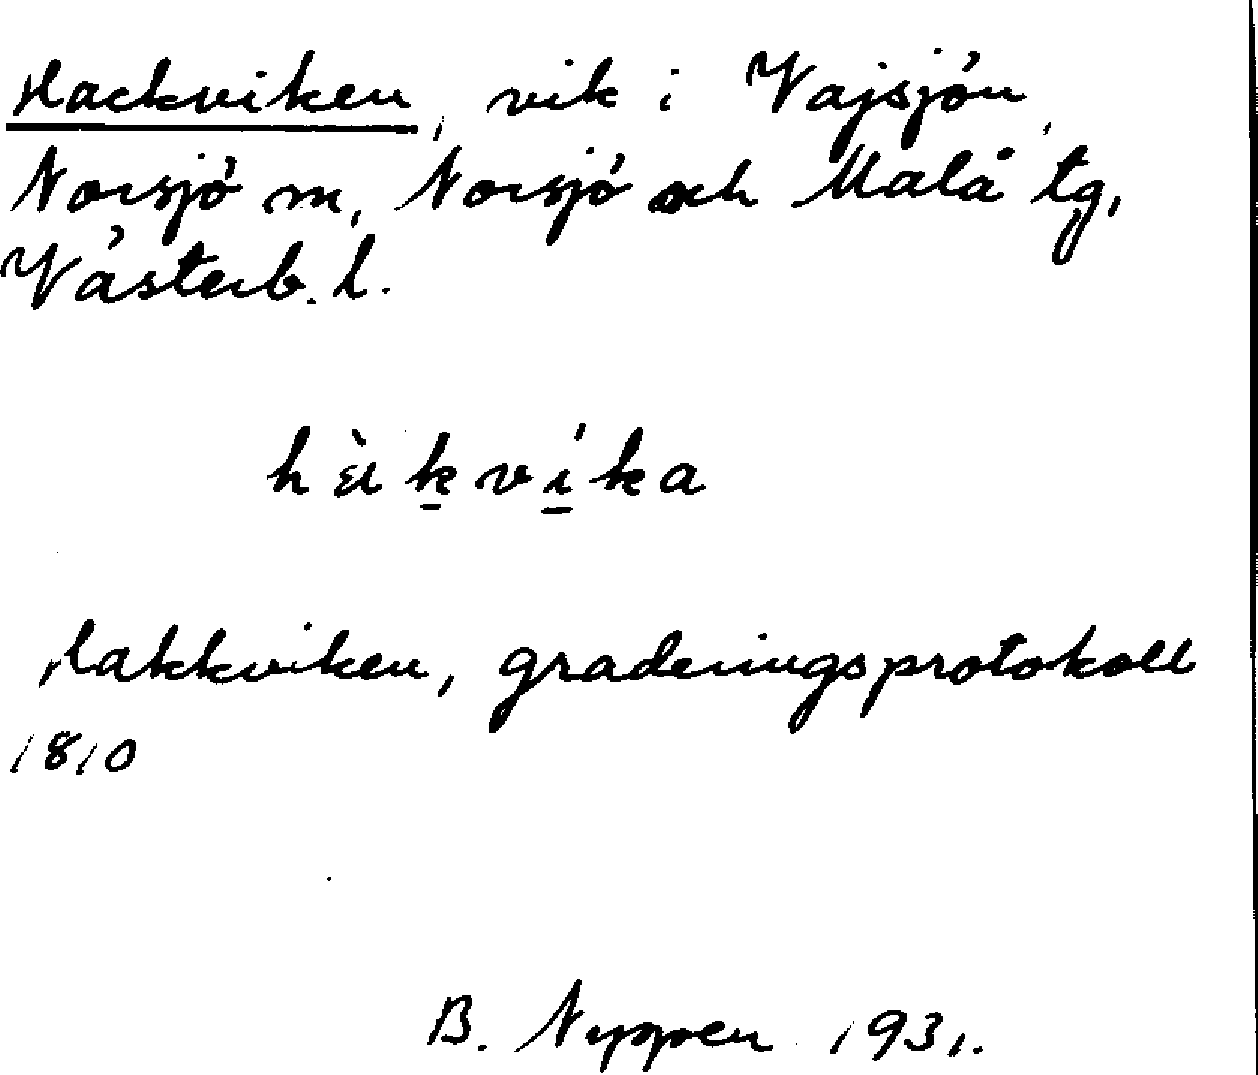 Hackviken, vik i Vajsjön,
Norsjö m, Norsjö och Malå tg,
Västerb. l.
hàk̲ví̲ka
Hakkviken, graderingsprotokoll
1810
B. Nyppen 1931.